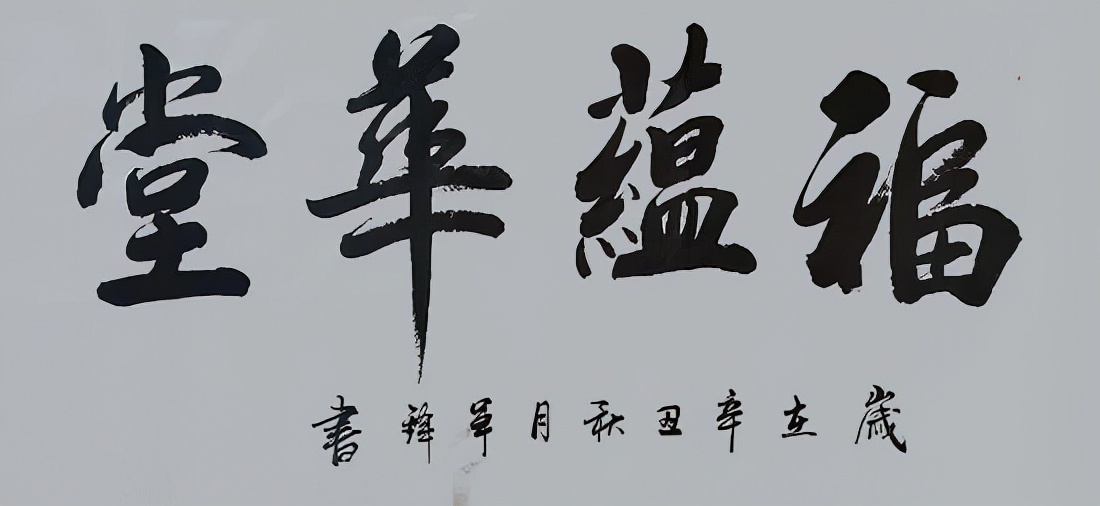 福蘊華堂
歲在辛丑秋月華鋒書